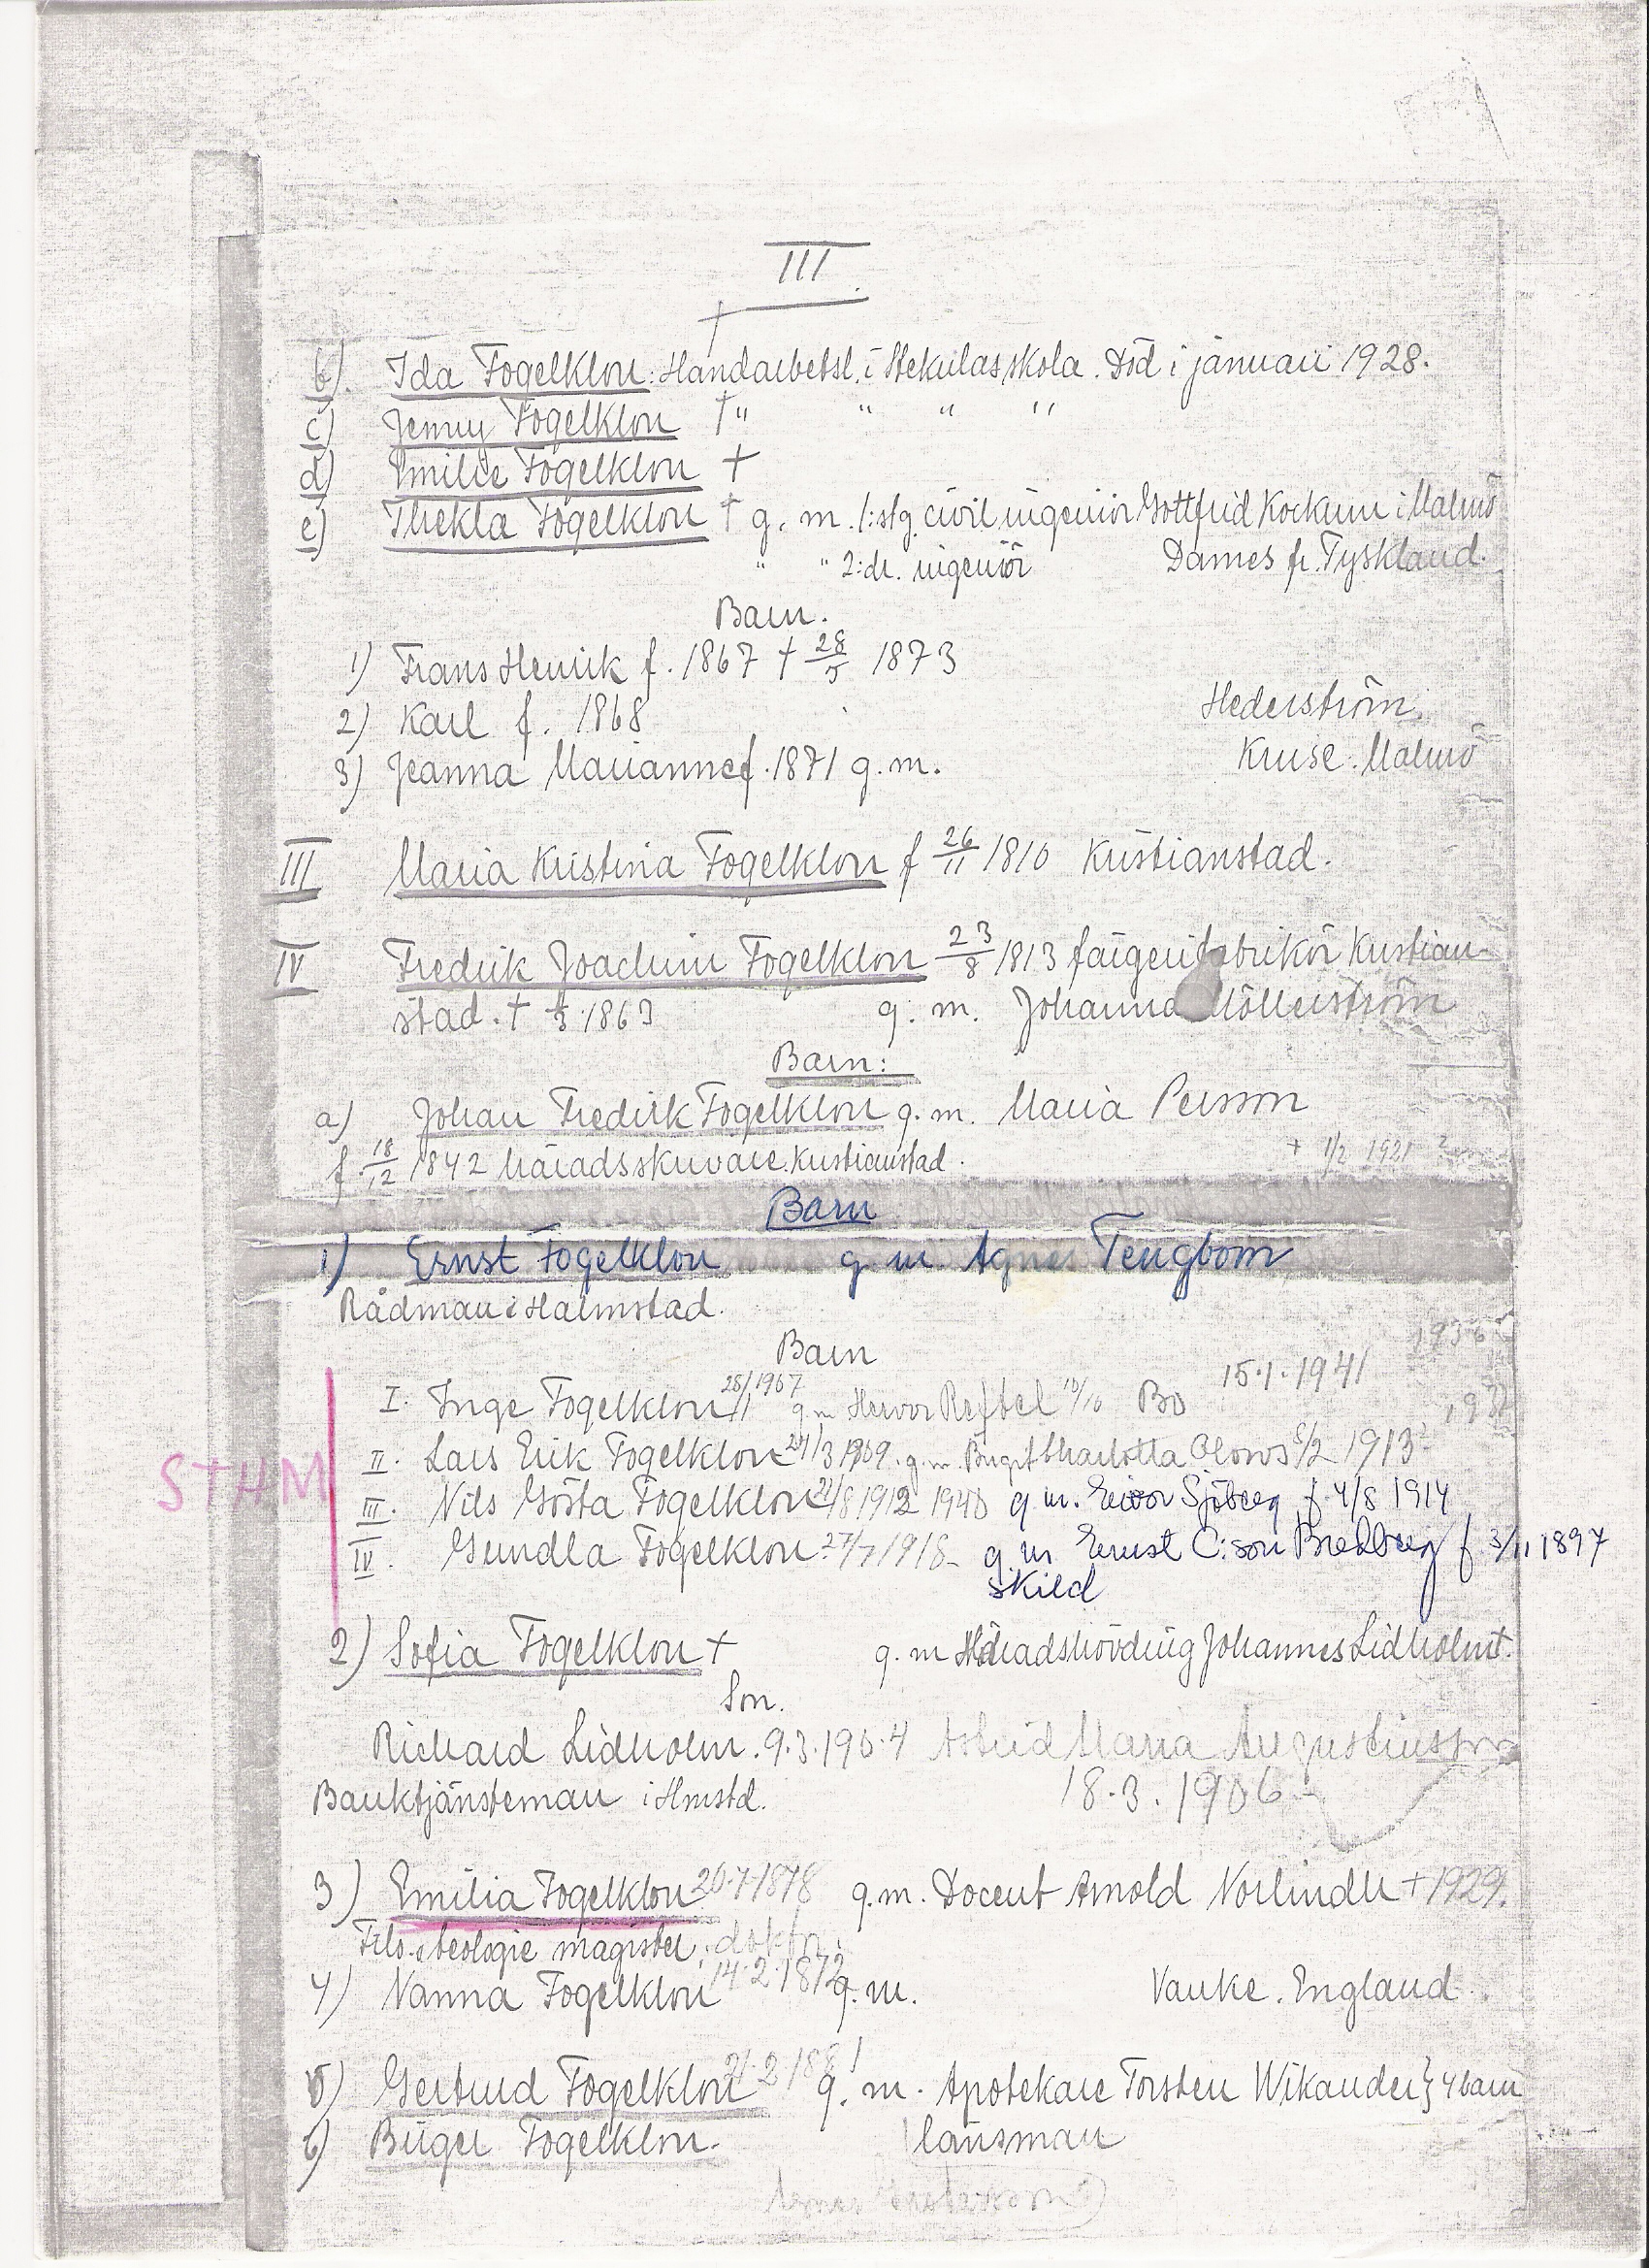 III.
b). Ida Fogelklou: Handarbetsl. i Stekulas skola. Död i januari 1928.
c) Jenny Fogelklou † " " " "
d) Emilie Fogelklou †
e) Thekla Fogelklou † g. m. 1:stg. civilingeniör Gottfrid Kockum i Malmö
" " 2:dr. ingeniör Dames fr. Tyskland.
Barn.
1) Frans Henrik f. 1867 † 28/5 1873
2) Karl f. 1868 Hederström.
3) Jeanna Marianne f. 1871 g. m. Kruse. Malmö
III Maria Kristina Fogelklou f 26/11 1810 Kristianstad.
IV Fredrik Joachim Fogelklou 23/8 1813 färgerifabrikör Kristian-
stad. † 1863 g. m. Johanna Möllerström
Barn:
a) Johan Fredrik Fogelklou g. m. Maria Person
f. 18/12 1842 Häradsskrivare. Kristianstad. + 1/2 1921 ?
Barn
1) Ernst Fogelklou g. m. Agnes Tengbom
Rådman i Halmstad.
1936
Barn
I. Inge Fogelklou 1907 g. m Hervor 10/10 Bo 15.1.1941
II. Lars Erik Fogelklou 24/3 1909. g. m. Birgit Charlotta 1913
STHM
III. Nils Gösta Fogelklou 1912 1940 g. m. Eivor Sjöberg f 4/8 1914
IV. Gundla Fogelklou 27/7 1918 g. m Ernst C:son Bredberg f 3/11 1897
skild
2) Sofia Fogelklou † g. m Häradshövding Johannes Lidholm †.
Son.
Richard Lidholm. 9.3.190.4 Astrid Maria Augustinsson
Banktjänsteman i Hmstd. 18.3.1906
3) Emilia Fogelklou 20.7.1878 g. m. Docent Arnold Norlinder † 1929.
Filo. o teologie magister, doktor
4) Nanna Fogelklou 14.2.1872 g. m. Vanke. England
5) Gertrud Fogelklou 21.2.1881 g. m. Apotekare Torsten Wikander } 4 barn
6) Birger Fogelklou. länsman